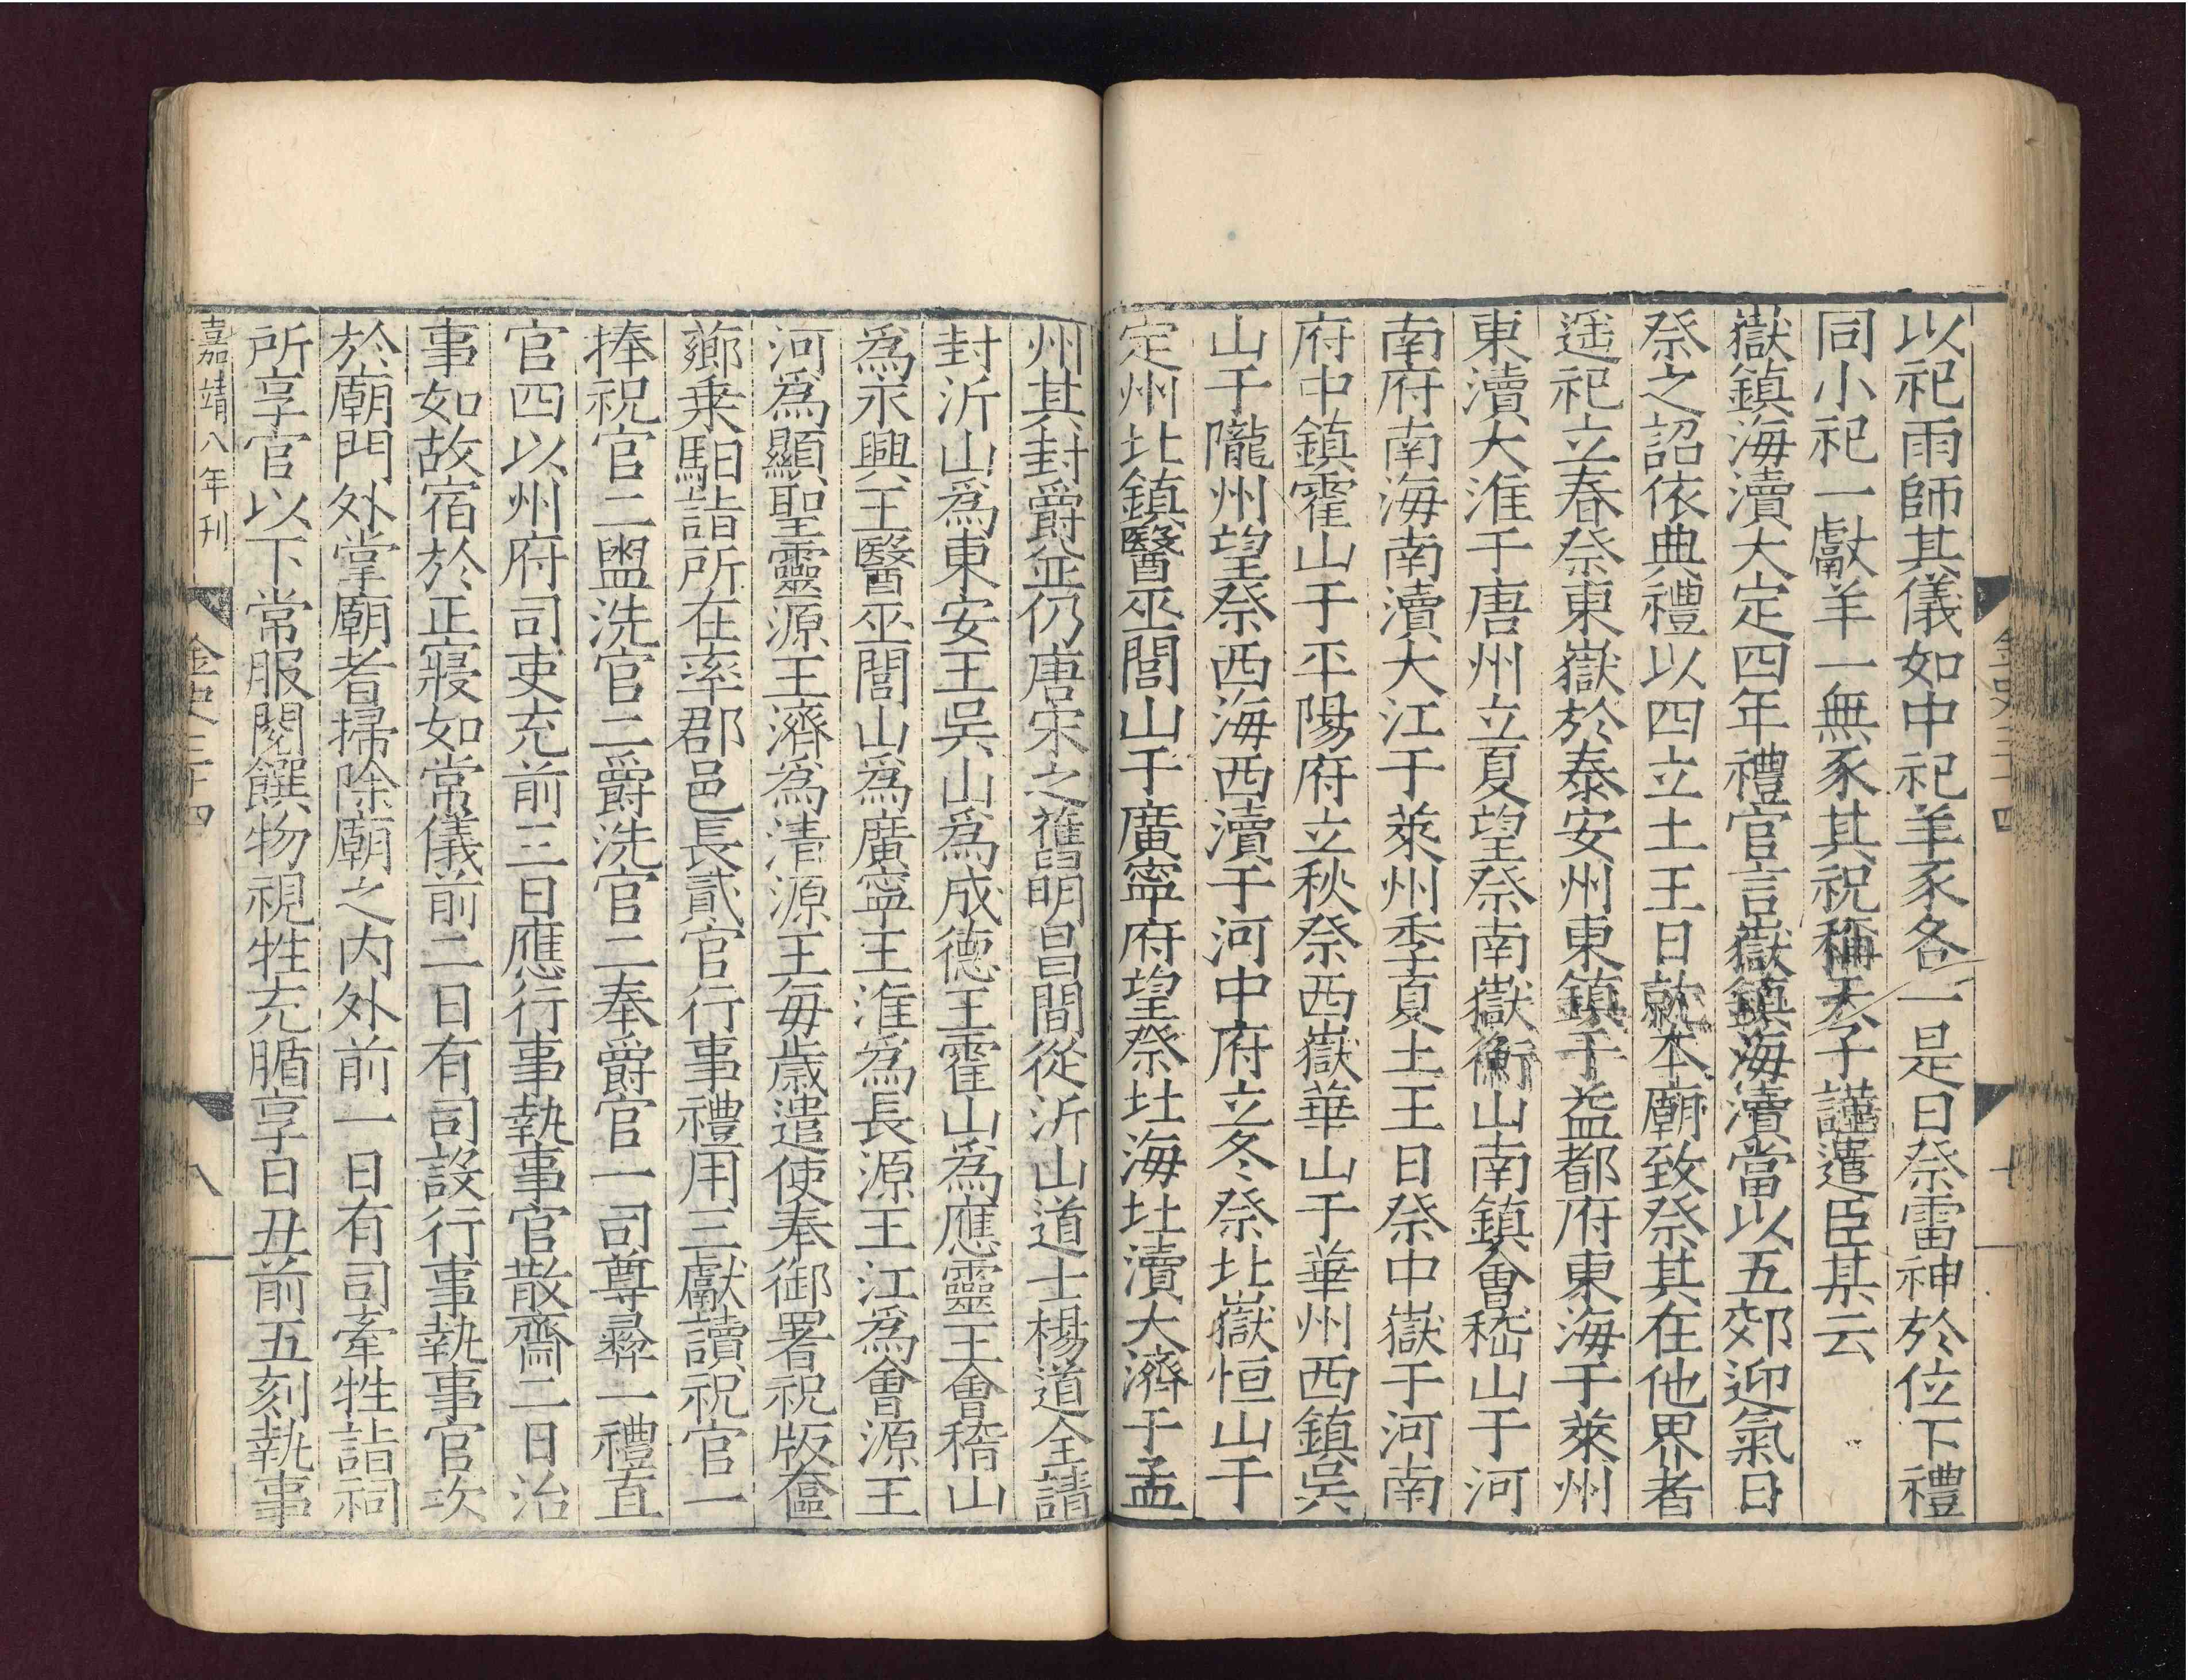 以祀雨師其儀如中祀羊豕各一是日祭雷神於位下禮
同小祀一獻羊一無豕其祝稱天子謹遣臣某云
嶽鎮海瀆大定四年禮官言嶽鎮海瀆當以五郊迎氣日
祭之詔依典禮以四立土王日就本廟致祭其在他界者
遥祀立春祭東嶽於泰安州東鎮于益都府東海于萊州
東瀆大淮于唐州立夏望祭南嶽衡山南鎮會嵇山于河
南府南海南瀆大江于萊州季夏土王日祭中嶽于河南
府中鎮霍山于平陽府立秋祭西嶽華山于華州西鎮吳
山于隴州望祭西海西瀆于河中府立冬祭北嶽恒山于
定州北鎮醫巫閭山于廣寧府望祭北海北瀆大濟于孟
州其封爵並仍唐宋之舊明昌間從沂山道士楊道全請
封沂山為東安王吳山為成德王霍山為應靈王會稽山
為永興王醫巫閭山為廣寧王淮為長源王江為會源王
河為顯聖靈源王濟為清源王每歲遣使奉御署祝版奩
薌乘馹詣所在率郡邑長貳官行事禮用三獻讀祝官一
捧祝官二盥洗官二爵洗官二奉爵官一司尊彛一禮直
官四以州府司吏充前三日應行事執事官散齋二日治
事如故宿於正寢如常儀前二日有司設行事執事官次
於廟門外掌廟者掃除廟之内外前一日有司牽牲詣祠
所享官以下常服閱饌物視牲充腯享日丑前五刻執事
嘉靖八年刊
金史三十四
八